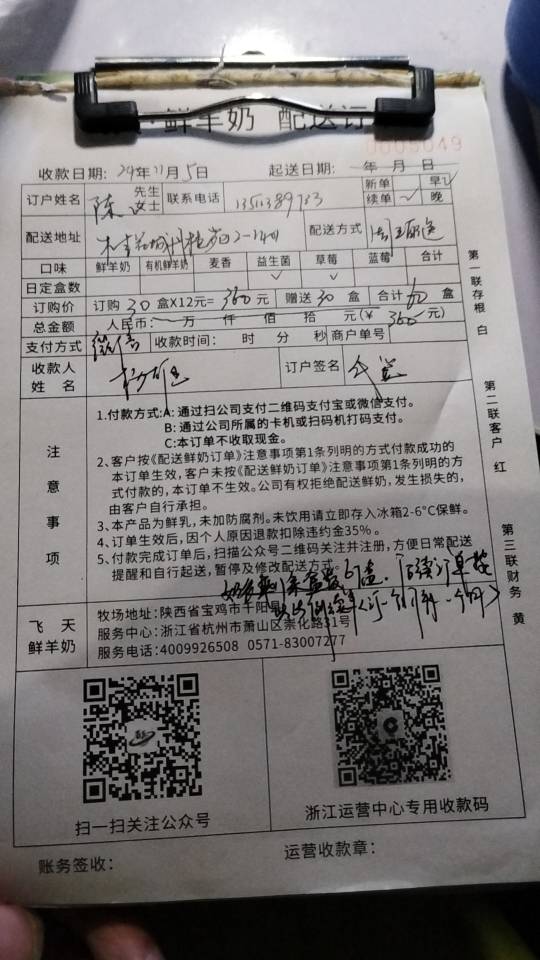 鲜羊奶 配送订
0005049
收款日期: 24年11月5日 起送日期: 年 月 日
订户姓名 陈 先生 女士 联系电话 新单 续单 ✓ 早 ✓ 晚
配送地址 配送方式
口味 鲜羊奶 有机鲜羊奶 麦香 益生菌 草莓 蓝莓 合计
日定盒数 ✓ ✓
订购价 订购 30 盒X12元= 360 元 赠送 30 盒 合计 60 盒
总金额 人民币: 万 仟 佰 拾 元(¥ 360元)
支付方式 微信 收款时间: 时 分 秒 商户单号
收款人姓名 订户签名
注意事项
1.付款方式:A: 通过扫公司支付二维码支付宝或微信支付。
B: 通过公司所属的卡机或扫码机打码支付。
C:本订单不收取现金。
2、客户按《配送鲜奶订单》注意事项第1条列明的方式付款成功的
本订单生效,客户未按《配送鲜奶订单》注意事项第1条列明的方
式付款的,本订单不生效。公司有权拒绝配送鲜奶,发生损失的,
由客户自行承担。
3、本产品为鲜乳,未加防腐剂。未饮用请立即存入冰箱2-6°C保鲜。
4、订单生效后,因个人原因退款扣除违约金35%。
5、付款完成订单后,扫描公众号二维码关注并注册,方便日常配送
提醒和自行起送,暂停及修改配送方式。
飞天
鲜羊奶
牧场地址:陕西省宝鸡市千阳县
服务中心:浙江省杭州市萧山区崇化路31号
服务电话:4009926508 0571-83007277
扫一扫关注公众号
浙江运营中心专用收款码
账务签收: 运营收款章:
第一联存根 白
第二联客户 红
第三联财务 黄